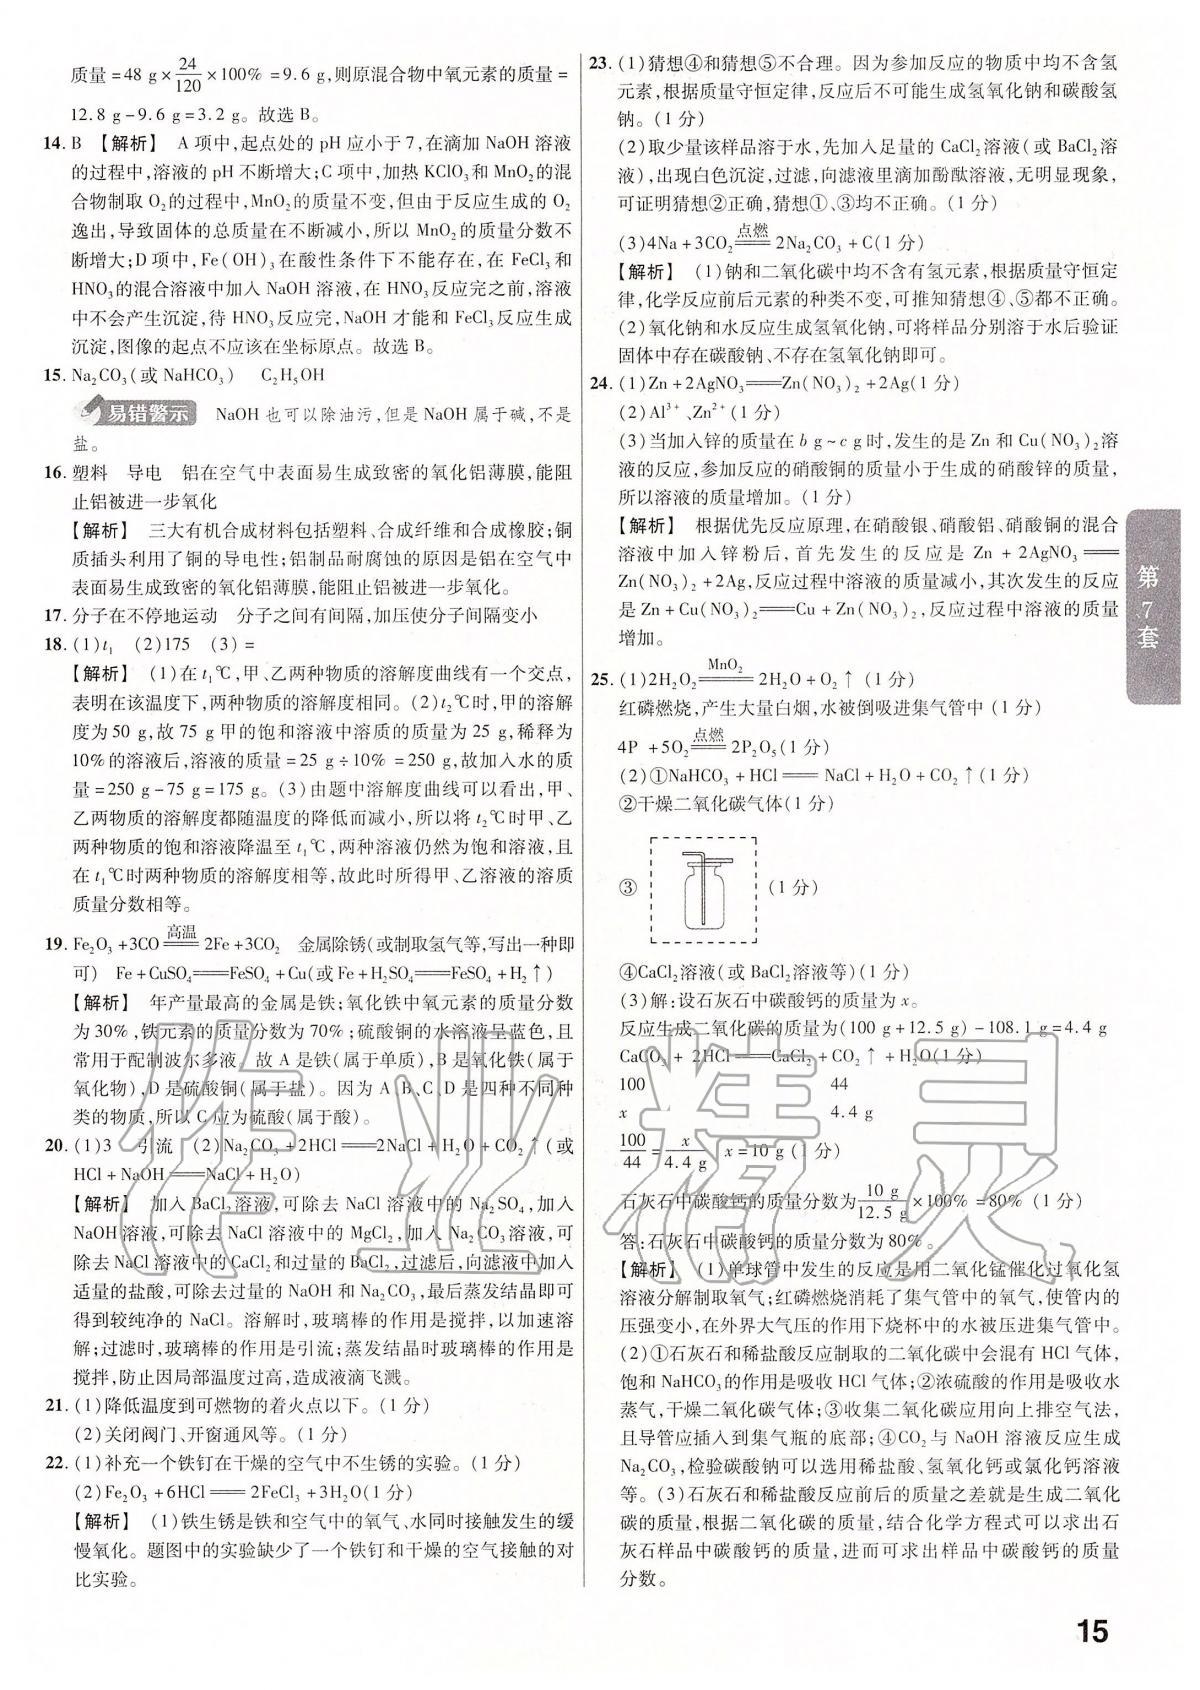 质量=48 g×24/120×100%=9.6 g,则原混合物中氧元素的质量=
12.8 g-9.6 g=3.2 g。故选B。
14. B 【解析】 A项中,起点处的pH应小于7,在滴加NaOH溶液
的过程中,溶液的pH不断增大;C项中,加热KClO₃和MnO₂的混
合物制取O₂的过程中,MnO₂的质量不变,但由于反应生成的O₂
逸出,导致固体的总质量在不断减小,所以MnO₂的质量分数不
断增大;D项中,Fe(OH)₃在酸性条件下不能存在,在FeCl₃和
HNO₃的混合溶液中加入NaOH溶液,在HNO₃反应完之前,溶液
中不会产生沉淀,待HNO₃反应完,NaOH才能和FeCl₃反应生成
沉淀,图像的起点不应该在坐标原点。故选B。
15. Na₂CO₃(或NaHCO₃) C₂H₅OH
易错警示 NaOH也可以除油污,但是NaOH属于碱,不是
盐。
16. 塑料 导电 铝在空气中表面易生成致密的氧化铝薄膜,能阻
止铝被进一步氧化
【解析】 三大有机合成材料包括塑料、合成纤维和合成橡胶;铜
质插头利用了铜的导电性;铝制品耐腐蚀的原因是铝在空气中
表面易生成致密的氧化铝薄膜,能阻止铝被进一步氧化。
17. 分子在不停地运动 分子之间有间隔,加压使分子间隔变小
18. (1)t₁ (2)175 (3)=
【解析】 (1)在t₁℃,甲、乙两种物质的溶解度曲线有一个交点,
表明在该温度下,两种物质的溶解度相同。(2)t₂℃时,甲的溶解
度为50 g,故75 g甲的饱和溶液中溶质的质量为25 g,稀释为
10%的溶液后,溶液的质量=25 g÷10%=250 g,故加入水的质
量=250 g-75 g=175 g。(3)由题中溶解度曲线可以看出,甲、
乙两物质的溶解度都随温度的降低而减小,所以将t₂℃时甲、乙
两种物质的饱和溶液降温至t₁℃,两种溶液仍然为饱和溶液,且
在t₁℃时两种物质的溶解度相等,故此时所得甲、乙溶液的溶质
质量分数相等。
19. Fe₂O₃+3CO 高温══ 2Fe+3CO₂ 金属除锈(或制取氢气等,写出一种即
可) Fe+CuSO₄══FeSO₄+Cu(或Fe+H₂SO₄══FeSO₄+H₂↑)
【解析】 年产量最高的金属是铁;氧化铁中氧元素的质量分数
为30%,铁元素的质量分数为70%;硫酸铜的水溶液呈蓝色,且
常用于配制波尔多液。故A是铁(属于单质),B是氧化铁(属于
氧化物),D是硫酸铜(属于盐)。因为A、B、C、D是四种不同种
类的物质,所以C应为硫酸(属于酸)。
20. (1)3 引流 (2)Na₂CO₃+2HCl══2NaCl+H₂O+CO₂↑(或
HCl+NaOH══NaCl+H₂O)
【解析】 加入BaCl₂溶液,可除去NaCl溶液中的Na₂SO₄,加入
NaOH溶液,可除去NaCl溶液中的MgCl₂,加入Na₂CO₃溶液,可
除去NaCl溶液中的CaCl₂和过量的BaCl₂,过滤后,向滤液中加入
适量的盐酸,可除去过量的NaOH和Na₂CO₃,最后蒸发结晶即可
得到较纯净的NaCl。溶解时,玻璃棒的作用是搅拌,以加速溶
解;过滤时,玻璃棒的作用是引流;蒸发结晶时玻璃棒的作用是
搅拌,防止因局部温度过高,造成液滴飞溅。
21. (1)降低温度到可燃物的着火点以下。(1分)
(2)关闭阀门、开窗通风等。(1分)
22. (1)补充一个铁钉在干燥的空气中不生锈的实验。(1分)
(2)Fe₂O₃+6HCl══2FeCl₃+3H₂O(1分)
【解析】 (1)铁生锈是铁和空气中的氧气、水同时接触发生的缓
慢氧化。题图中的实验缺少了一个铁钉和干燥的空气接触的对
比实验。
23. (1)猜想④和猜想⑤不合理。因为参加反应的物质中均不含氢
元素,根据质量守恒定律,反应后不可能生成氢氧化钠和碳酸氢
钠。(1分)
(2)取少量该样品溶于水,先加入足量的CaCl₂溶液(或BaCl₂溶
液),出现白色沉淀,过滤,向滤液里滴加酚酞溶液,无明显现象,
可证明猜想②正确,猜想①、③均不正确。(1分)
(3)4Na+3CO₂ 点燃══ 2Na₂CO₃+C(1分)
【解析】 (1)钠和二氧化碳中均不含有氢元素,根据质量守恒定
律,化学反应前后元素的种类不变,可推知猜想④、⑤都不正确。
(2)氧化钠和水反应生成氢氧化钠,可将样品分别溶于水后验证
固体中存在碳酸钠、不存在氢氧化钠即可。
24. (1)Zn+2AgNO₃══Zn(NO₃)₂+2Ag(1分)
(2)Al³⁺、Zn²⁺(1分)
(3)当加入锌的质量在b g~c g时,发生的是Zn和Cu(NO₃)₂溶
液的反应,参加反应的硝酸铜的质量小于生成的硝酸锌的质量,
所以溶液的质量增加。(1分)
【解析】 根据优先反应原理,在硝酸银、硝酸铝、硝酸铜的混合
溶液中加入锌粉后,首先发生的反应是Zn+2AgNO₃══
Zn(NO₃)₂+2Ag,反应过程中溶液的质量减小,其次发生的反应
是Zn+Cu(NO₃)₂══Cu+Zn(NO₃)₂,反应过程中溶液的质量
增加。
25. (1)2H₂O₂ MnO₂══ 2H₂O+O₂↑(1分)
红磷燃烧,产生大量白烟,水被倒吸进集气管中(1分)
4P+5O₂ 点燃══ 2P₂O₅(1分)
(2)①NaHCO₃+HCl══NaCl+H₂O+CO₂↑(1分)
②干燥二氧化碳气体(1分)
③ (1分)
④CaCl₂溶液(或BaCl₂溶液等)(1分)
(3)解:设石灰石中碳酸钙的质量为x。
反应生成二氧化碳的质量为(100 g+12.5 g)-108.1 g=4.4 g
CaCO₃+2HCl══CaCl₂+CO₂↑+H₂O(1分)
100 44
x 4.4 g
100/44=x/4.4 g x=10 g(1分)
石灰石中碳酸钙的质量分数为10 g/12.5 g×100%=80%(1分)
答:石灰石中碳酸钙的质量分数为80%。
【解析】 (1)单球管中发生的反应是用二氧化锰催化过氧化氢
溶液分解制取氧气;红磷燃烧消耗了集气管中的氧气,使管内的
压强变小,在外界大气压的作用下烧杯中的水被压进集气管中。
(2)①石灰石和稀盐酸反应制取的二氧化碳中会混有HCl气体,
饱和NaHCO₃的作用是吸收HCl气体;②浓硫酸的作用是吸收水
蒸气,干燥二氧化碳气体;③收集二氧化碳应用向上排空气法,
且导管应插入到集气瓶的底部;④CO₂与NaOH溶液反应生成
Na₂CO₃,检验碳酸钠可以选用稀盐酸、氢氧化钙或氯化钙溶液
等。(3)石灰石和稀盐酸反应前后的质量之差就是生成二氧化
碳的质量,根据二氧化碳的质量,结合化学方程式可以求出石
灰石样品中碳酸钙的质量,进而可求出样品中碳酸钙的质量
分数。
第7套
作业精灵
15